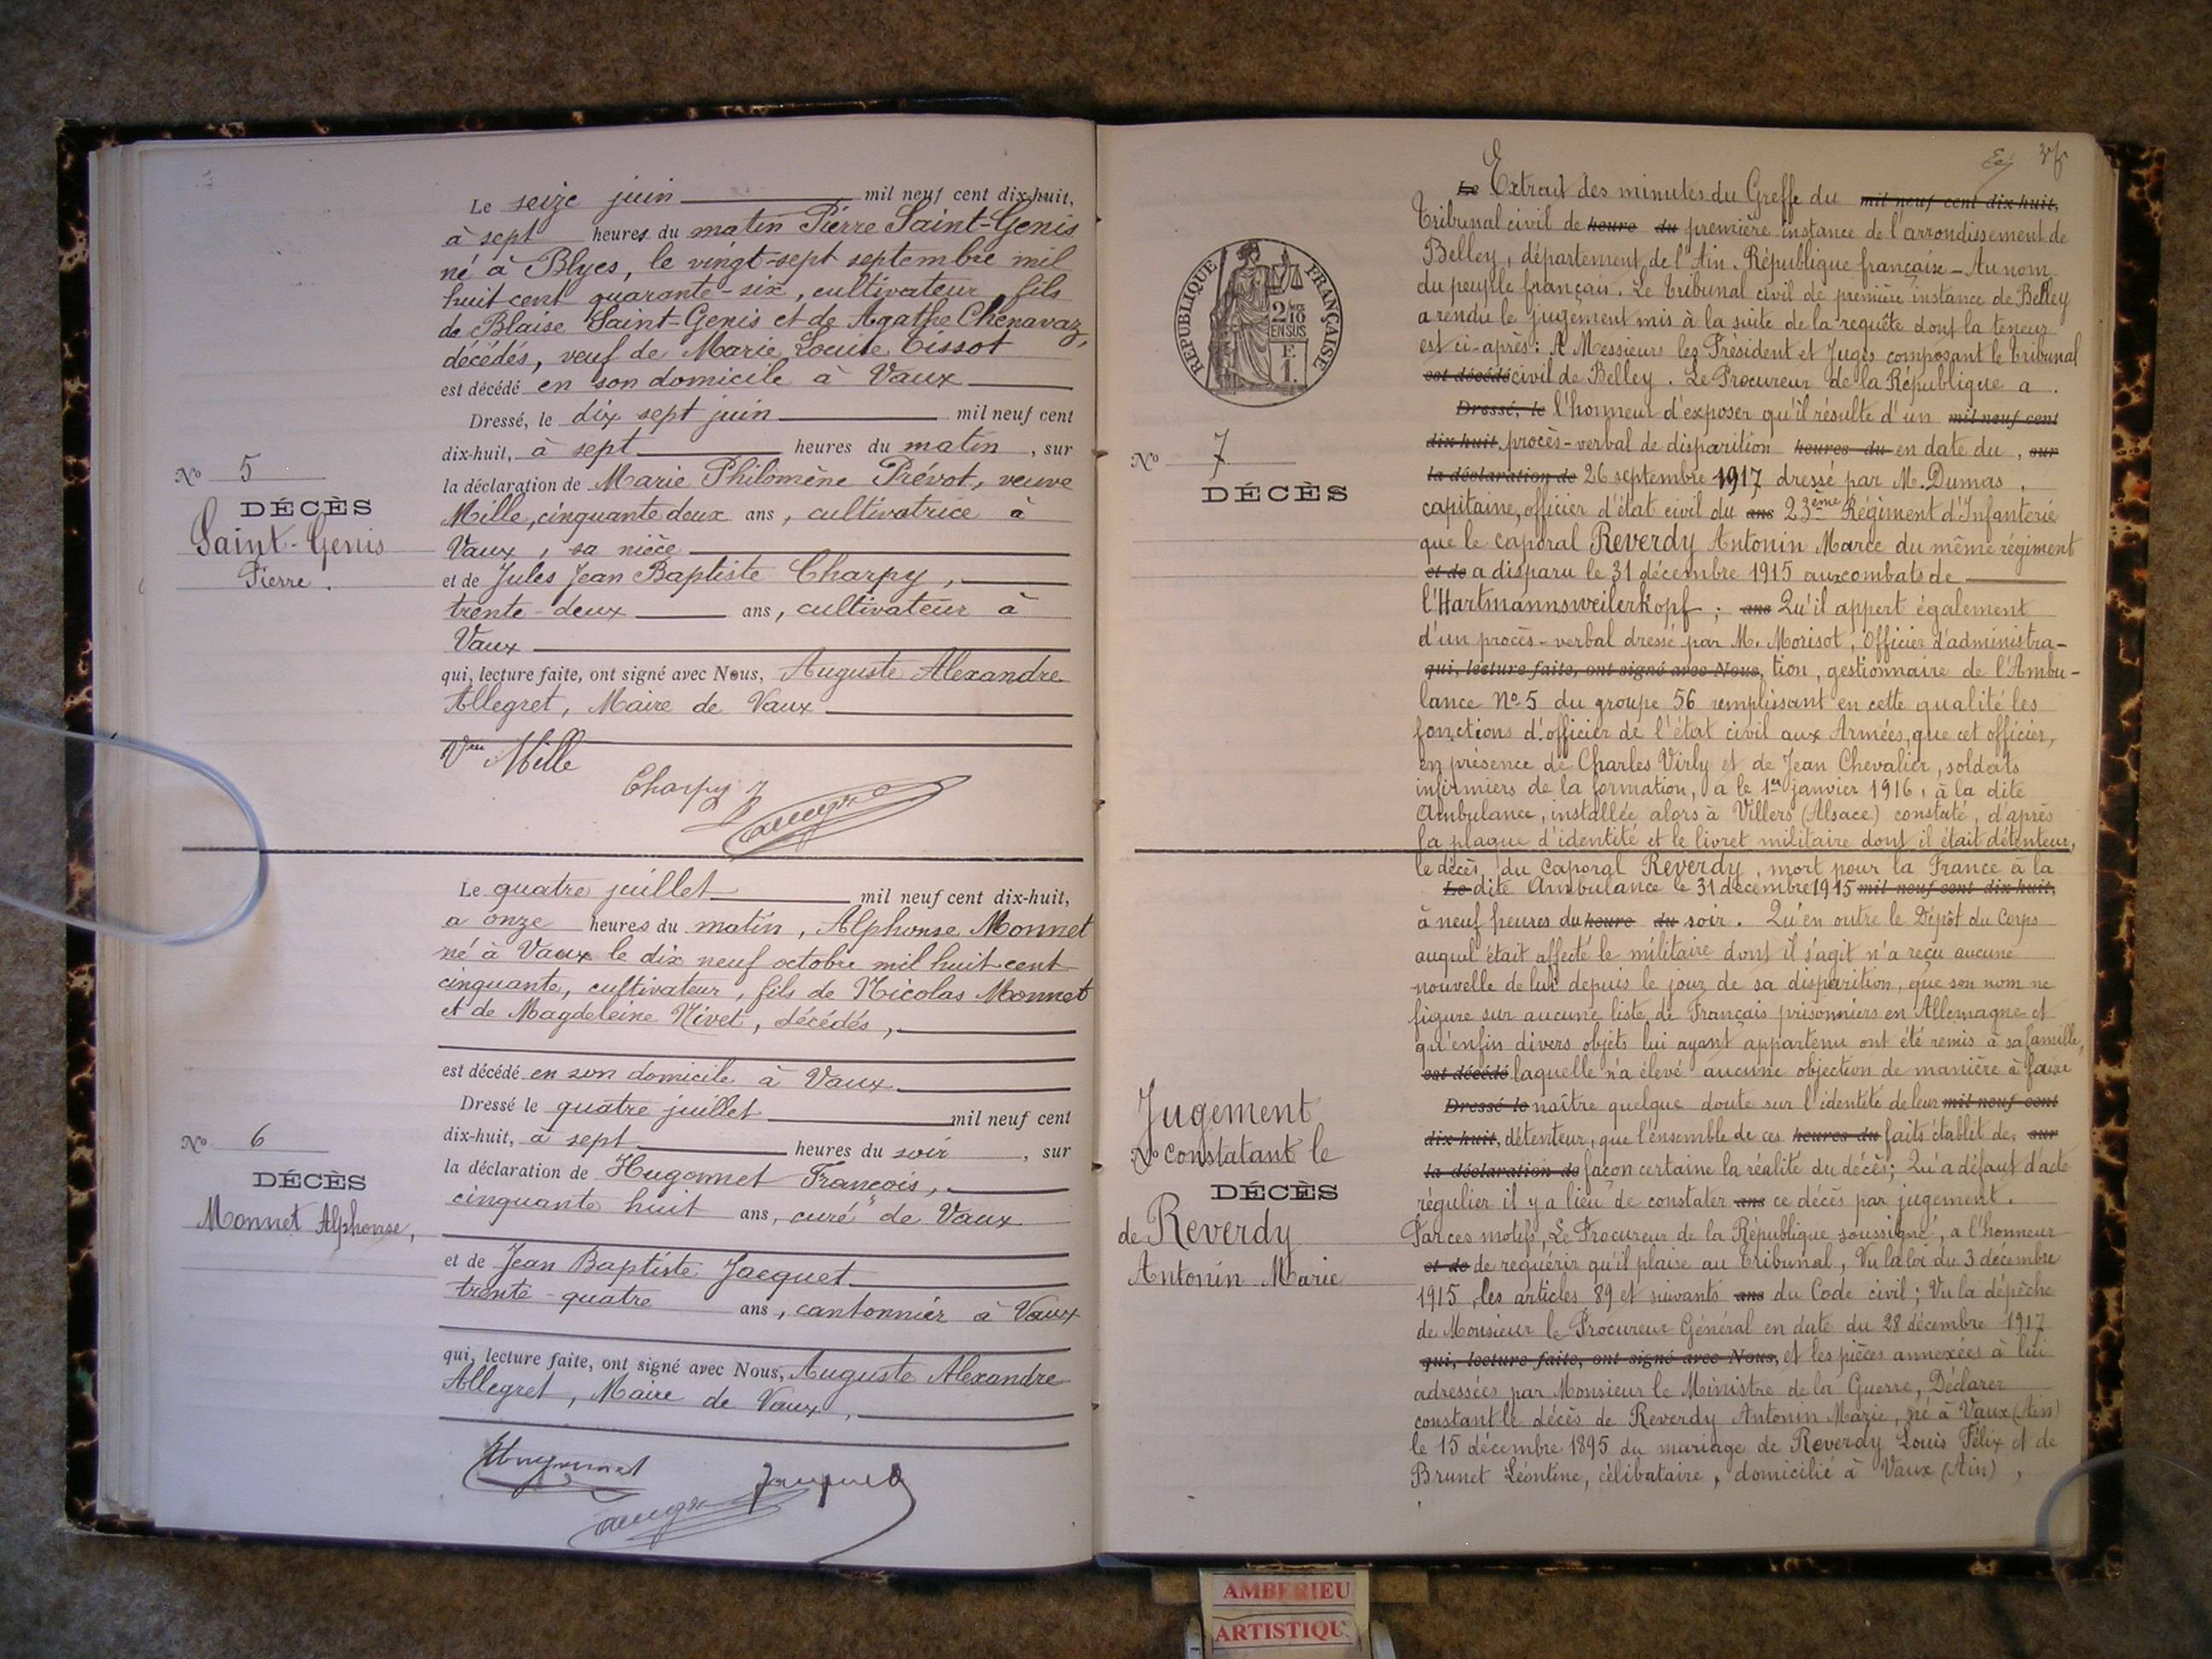 Le seize juin mil neuf cent dix-huit,
à sept heures du matin Pierre Saint-Genis
né à Blyes, le vingt-sept septembre mil
huit cent quarante-six, cultivateur, fils
de Blaise Saint-Genis et de Agathe Chenavaz,
décédés, veuf de Marie Louise Tissot
est décédé en son domicile à Vaux
Dressé, le dix sept juin mil neuf cent
dix-huit, à sept heures du matin, sur
la déclaration de Marie Philomène Prévot, veuve
Mille, cinquante deux ans, cultivatrice à
Vaux, sa nièce
et de Jules Jean Baptiste Charpy,
trente-deux ans, cultivateur à
Vaux
qui, lecture faite, ont signé avec Nous, Auguste Alexandre
Allegret, Maire de Vaux
Vve Mille
Charpy J
No 5
DÉCÈS
Saint-Genis
Pierre.
Le quatre juillet mil neuf cent dix-huit,
a onze heures du matin, Alphonse Monnet
né à Vaux le dix neuf octobre mil huit cent
cinquante, cultivateur, fils de Nicolas Monnet
et de Magdeleine Nivet, décédés,
est décédé en son domicile à Vaux
Dressé le quatre juillet mil neuf cent
dix-huit, à sept heures du soir, sur
la déclaration de Hugonnet François,
cinquante huit ans, curé de Vaux
et de Jean Baptiste Jacquet
trente-quatre ans, cantonnier à Vaux
qui, lecture faite, ont signé avec Nous, Auguste Alexandre
Allegret, Maire de Vaux,
Hugonnet
Jacquet
No 6
DÉCÈS
Monnet Alphonse,
RÉPUBLIQUE FRANÇAISE
2/10
EN SUS
F.
1.
No 7
DÉCÈS
Le Extrait des minutes du Greffe du mil neuf cent dix-huit,
Tribunal civil de heure du première instance de l'arrondissement de
Belley, département de l'Ain. République française - Au nom
du peuple français. Le Tribunal civil de première instance de Belley
a rendu le jugement mis à la suite de la requête dont la teneur
est ci-après: A Messieurs les Président et Juges composant le Tribunal
est décédé civil de Belley. Le Procureur de la République a
Dressé, le l'honneur d'exposer qu'il résulte d'un mil neuf cent
dix-huit, procès-verbal de disparition heures du en date du, sur
la déclaration de 26 septembre 1917 dressé par M. Dumas,
capitaine, officier d'état civil du ans 23ème Régiment d'Infanterie
que le caporal Reverdy Antonin Marce du même régiment
et de a disparu le 31 décembre 1915 aux combats de
l'Hartmannsweilerkopf; ans Qu'il appert également
d'un procès-verbal dressé par M. Morisot, Officier d'administra-
qui, lecture faite, ont signé avec Nous, tion, gestionnaire de l'Ambu-
lance No 5 du groupe 56 remplissant en cette qualité les
fonctions d'officier de l'état civil aux Armées, que cet officier,
en présence de Charles Virly et de Jean Chevalier, soldats
infirmiers de la formation, a le 1er janvier 1916, à la dite
Ambulance, installée alors à Villers (Alsace) constaté, d'après
la plaque d'identité et le livret militaire dont il était détenteur,
le décès du Caporal Reverdy, mort pour la France à la
Le dite Ambulance le 31 décembre 1915 mil neuf cent dix-huit,
à neuf heures du heure du soir. Qu'en outre le Dépôt du Corps
auquel était affecté le militaire dont il s'agit n'a reçu aucune
nouvelle de lui depuis le jour de sa disparition, que son nom ne
figure sur aucune liste de Français prisonniers en Allemagne et
qu'enfin divers objets lui ayant appartenu ont été remis à sa famille,
est décédé laquelle n'a élevé aucune objection de manière à faire
Dressé le naître quelque doute sur l'identité de leur mil neuf cent
dix-huit, détenteur, que l'ensemble de ces heures du faits établit de, sur
la déclaration de façon certaine la réalité du décès; Qu'à défaut d'acte
régulier il y a lieu de constater ans ce décès par jugement.
Par ces motifs, Le Procureur de la République soussigné, a l'honneur
et de de requérir qu'il plaise au Tribunal, Vu la loi du 3 décembre
1915, les articles 89 et suivants ans du Code civil; Vu la dépêche
de Monsieur le Procureur Général en date du 28 décembre 1917
qui, lecture faite, ont signé avec Nous, et les pièces annexées à lui
adressées par Monsieur le Ministre de la Guerre, Déclarer
constant le décès de Reverdy Antonin Marie, né à Vaux (Ain)
le 15 décembre 1895 du mariage de Reverdy Louis Félix et de
Brunet Léontine, célibataire, domicilié à Vaux (Ain),
Jugement
No constatant le
DÉCÈS
de Reverdy
Antonin Marie
AMBERIEU
ARTISTIQU